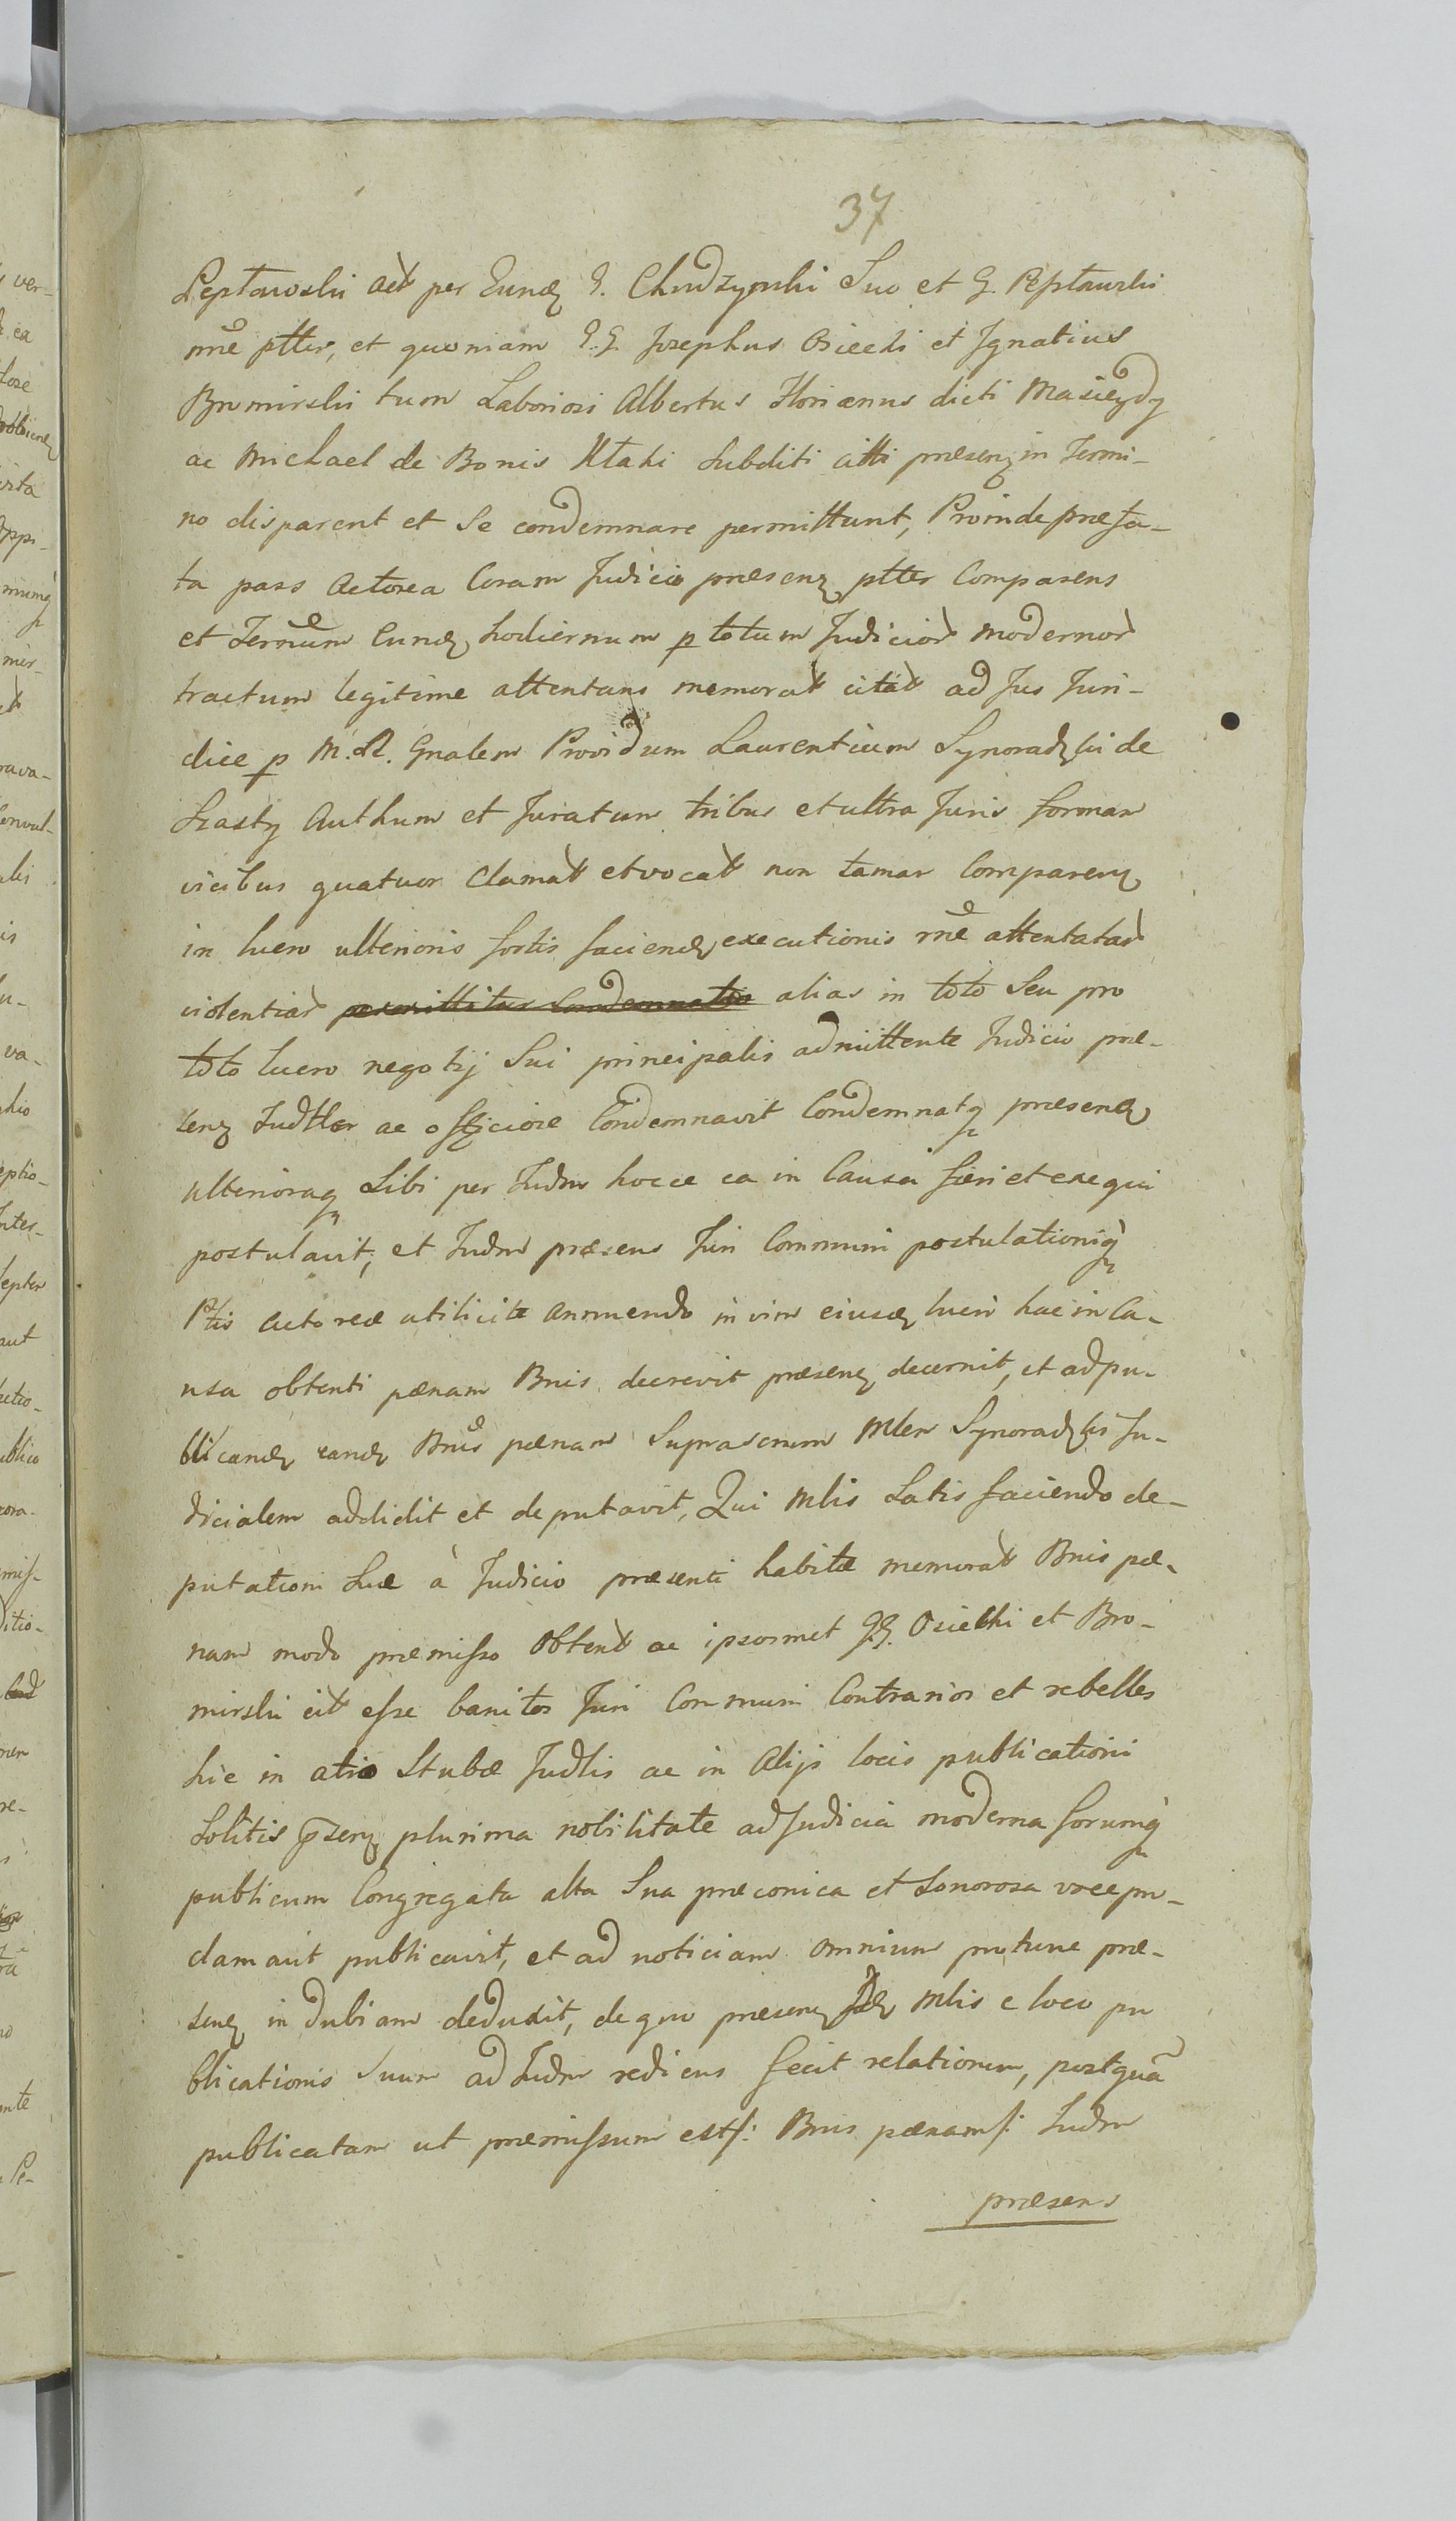 37
Peptowski act per Eundq G. Chudzynski Suo et G. Peptowski
nne ptter, et quoniam G.G. Josephus Osiecki et Ignatius
Bromirski tum Laboriosi Albertus Florianus dicti Masieydy
ac Michael de Bonis Ktaki Subditi citti præsenq in Termi-
no disparent et Se condemnare permittunt, Proinde præfa-
ta pars Actorea Coram Judicio præsenq ptter Comparens
et Termum Eundq hodiernum p totum Judicior modernor
tractum legitime attentans memorat citat ad Jus Juri-
dice p M. R. Gnalem Providum Laurentium Synoradzki de
Szasty Authum et Juratum tribus et ultra Juris formam
vicibus quatuor Clamat et vocat non tamen Comparenq
in lucro ulterioris fortis faciendq executionis rne attentatar
violentiar permittitur Condemnatos alias in toto Seu pro
toto lucro negotij Sui principalis admittente Judicio præ-
senq Judtter ac officiose Condemnavit Condemnatq præsenq
ulterioraq Sibi per Judm hocce ea in Causa fieri et exequi
postulavit, et Judm præsens Juri Communi postulationiq
Ptis Actoreæ utilicite annuendo in vim eiusdq lucri hac in Ca-
usa obtenti pænam Bnis decrevit præsenq decernit, et ad pu-
blicandq eandq Bnis pænam Suprascrium Mlem Synoradzki Ju-
dicialem addidit et deputavit, Qui Mlis Satis faciendo de-
putationi Suæ à Judicio præsenti habitæ memorat Bnis pæ-
nam modo præmisso Obtent ac ipsosmet G.G. Osiecki et Bro-
mirski cit esse banitos Juri Communi Contrarios et rebelles
hic in atrio Stubæ Judlis ac in Alijs locis publicationi
Solitis p̃senq plurima nobilitate ad Judicia moderna forumq
publicum Congregata alta Sua præconica et Sonorosa voce pro-
clamavit publicavit, et ad noticiam omnium protunc præ-
senq indubiam deduxit, de quo præsenq Mlis e loco pu
blicationis Suum ad Judm rediens fecit relationem, postquã
publicatam ut præmissum est/: Bnis pænam/: Judm
præsens